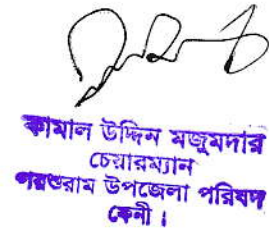 কামাল উদ্দিন মজুমদার
চেয়ারম্যান
পরশুরাম উপজেলা পরিষদ
ফেনী।